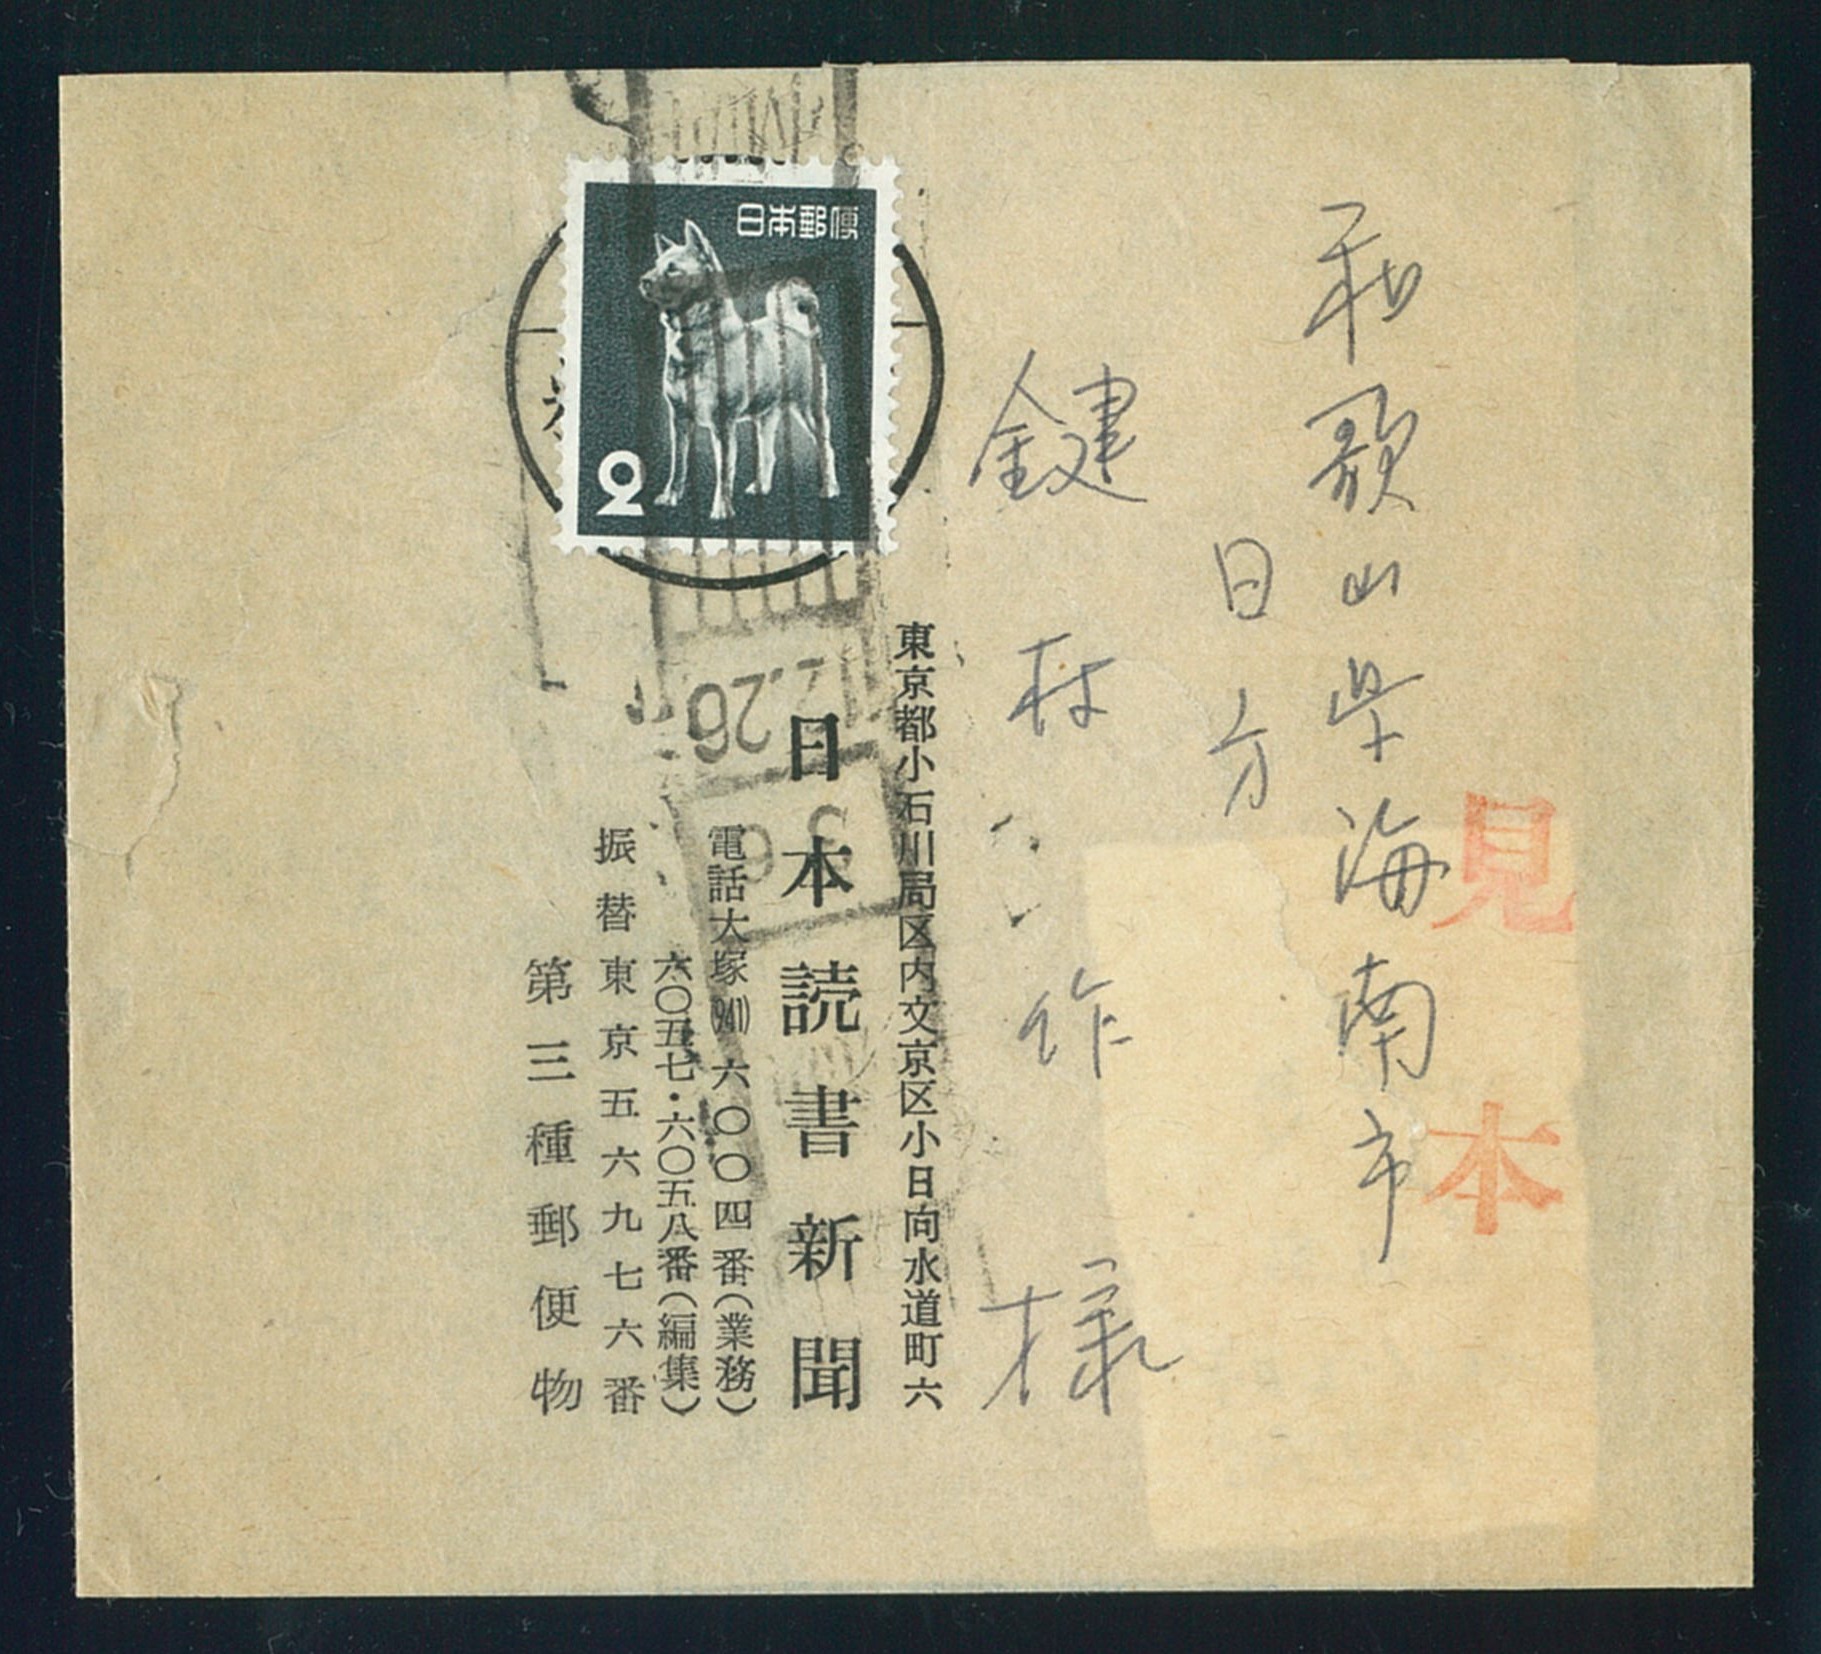 見本
和歌山県海南市
日方
鍵村作様
日本郵便
2
東京都小石川局区内文京区小日向水道町六
日本読書新聞
電話大塚(941)六〇〇四番(業務)
六〇五七・六〇五八番(編集)
振替東京五六九七六番
第三種郵便物
2.26